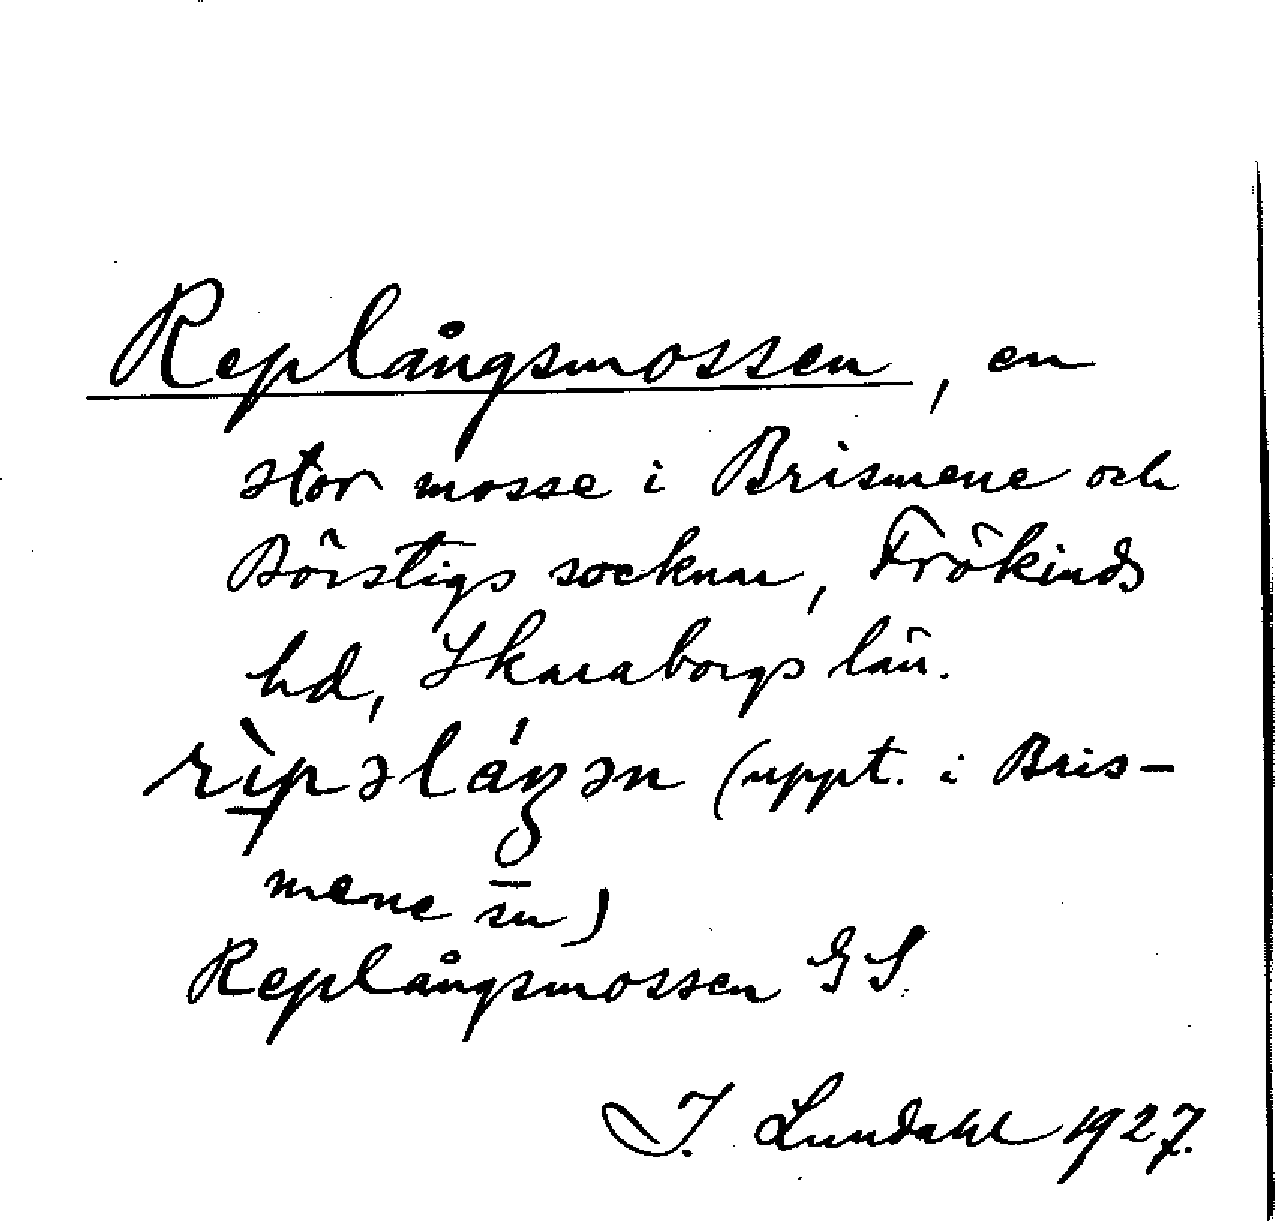 Replångsmossen, en
stor mosse i Brismene och
Börstigs socknar, Frökinds
hd, Skaraborgs län.
(uppt. i Bris-
mene sn)
Replångsmossen GS.
I. Lundahl 1927.